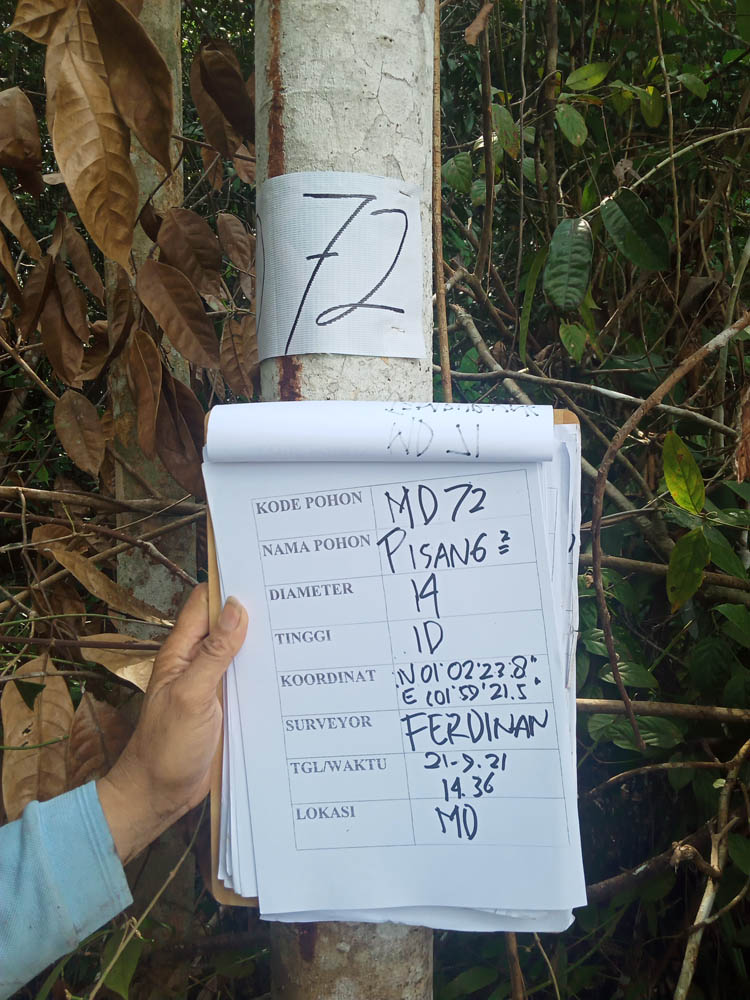 72
MD 71
KODE POHON MD 72
NAMA POHON PISANG ²
DIAMETER 14
TINGGI 10
KOORDINAT N 01°02'23.8"
E 101°59'21.5"
SURVEYOR FERDINAN
TGL/WAKTU 21-9-21
14.36
LOKASI MD